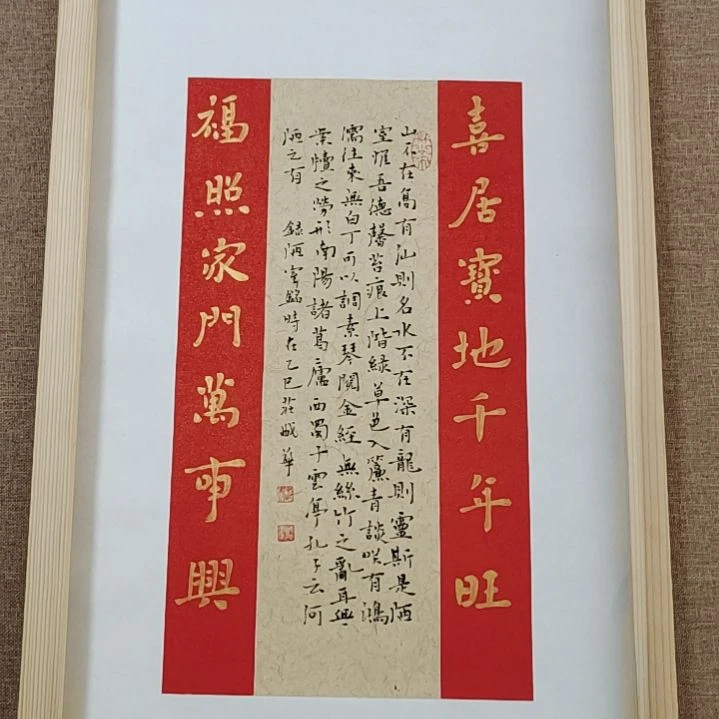 喜居寶地千年旺
山不在高有仙則名水不在深有龍則靈斯是陋
室惟吾德馨苔痕上階綠草色入簾青談咲有鴻
儒往來無白丁可以調素琴閱金經無絲竹之亂耳無
案牘之勞形南陽諸葛廬西蜀子雲亭孔子云何
陋之有 錄陋室銘時在乙巳莊華
福照家門萬事興